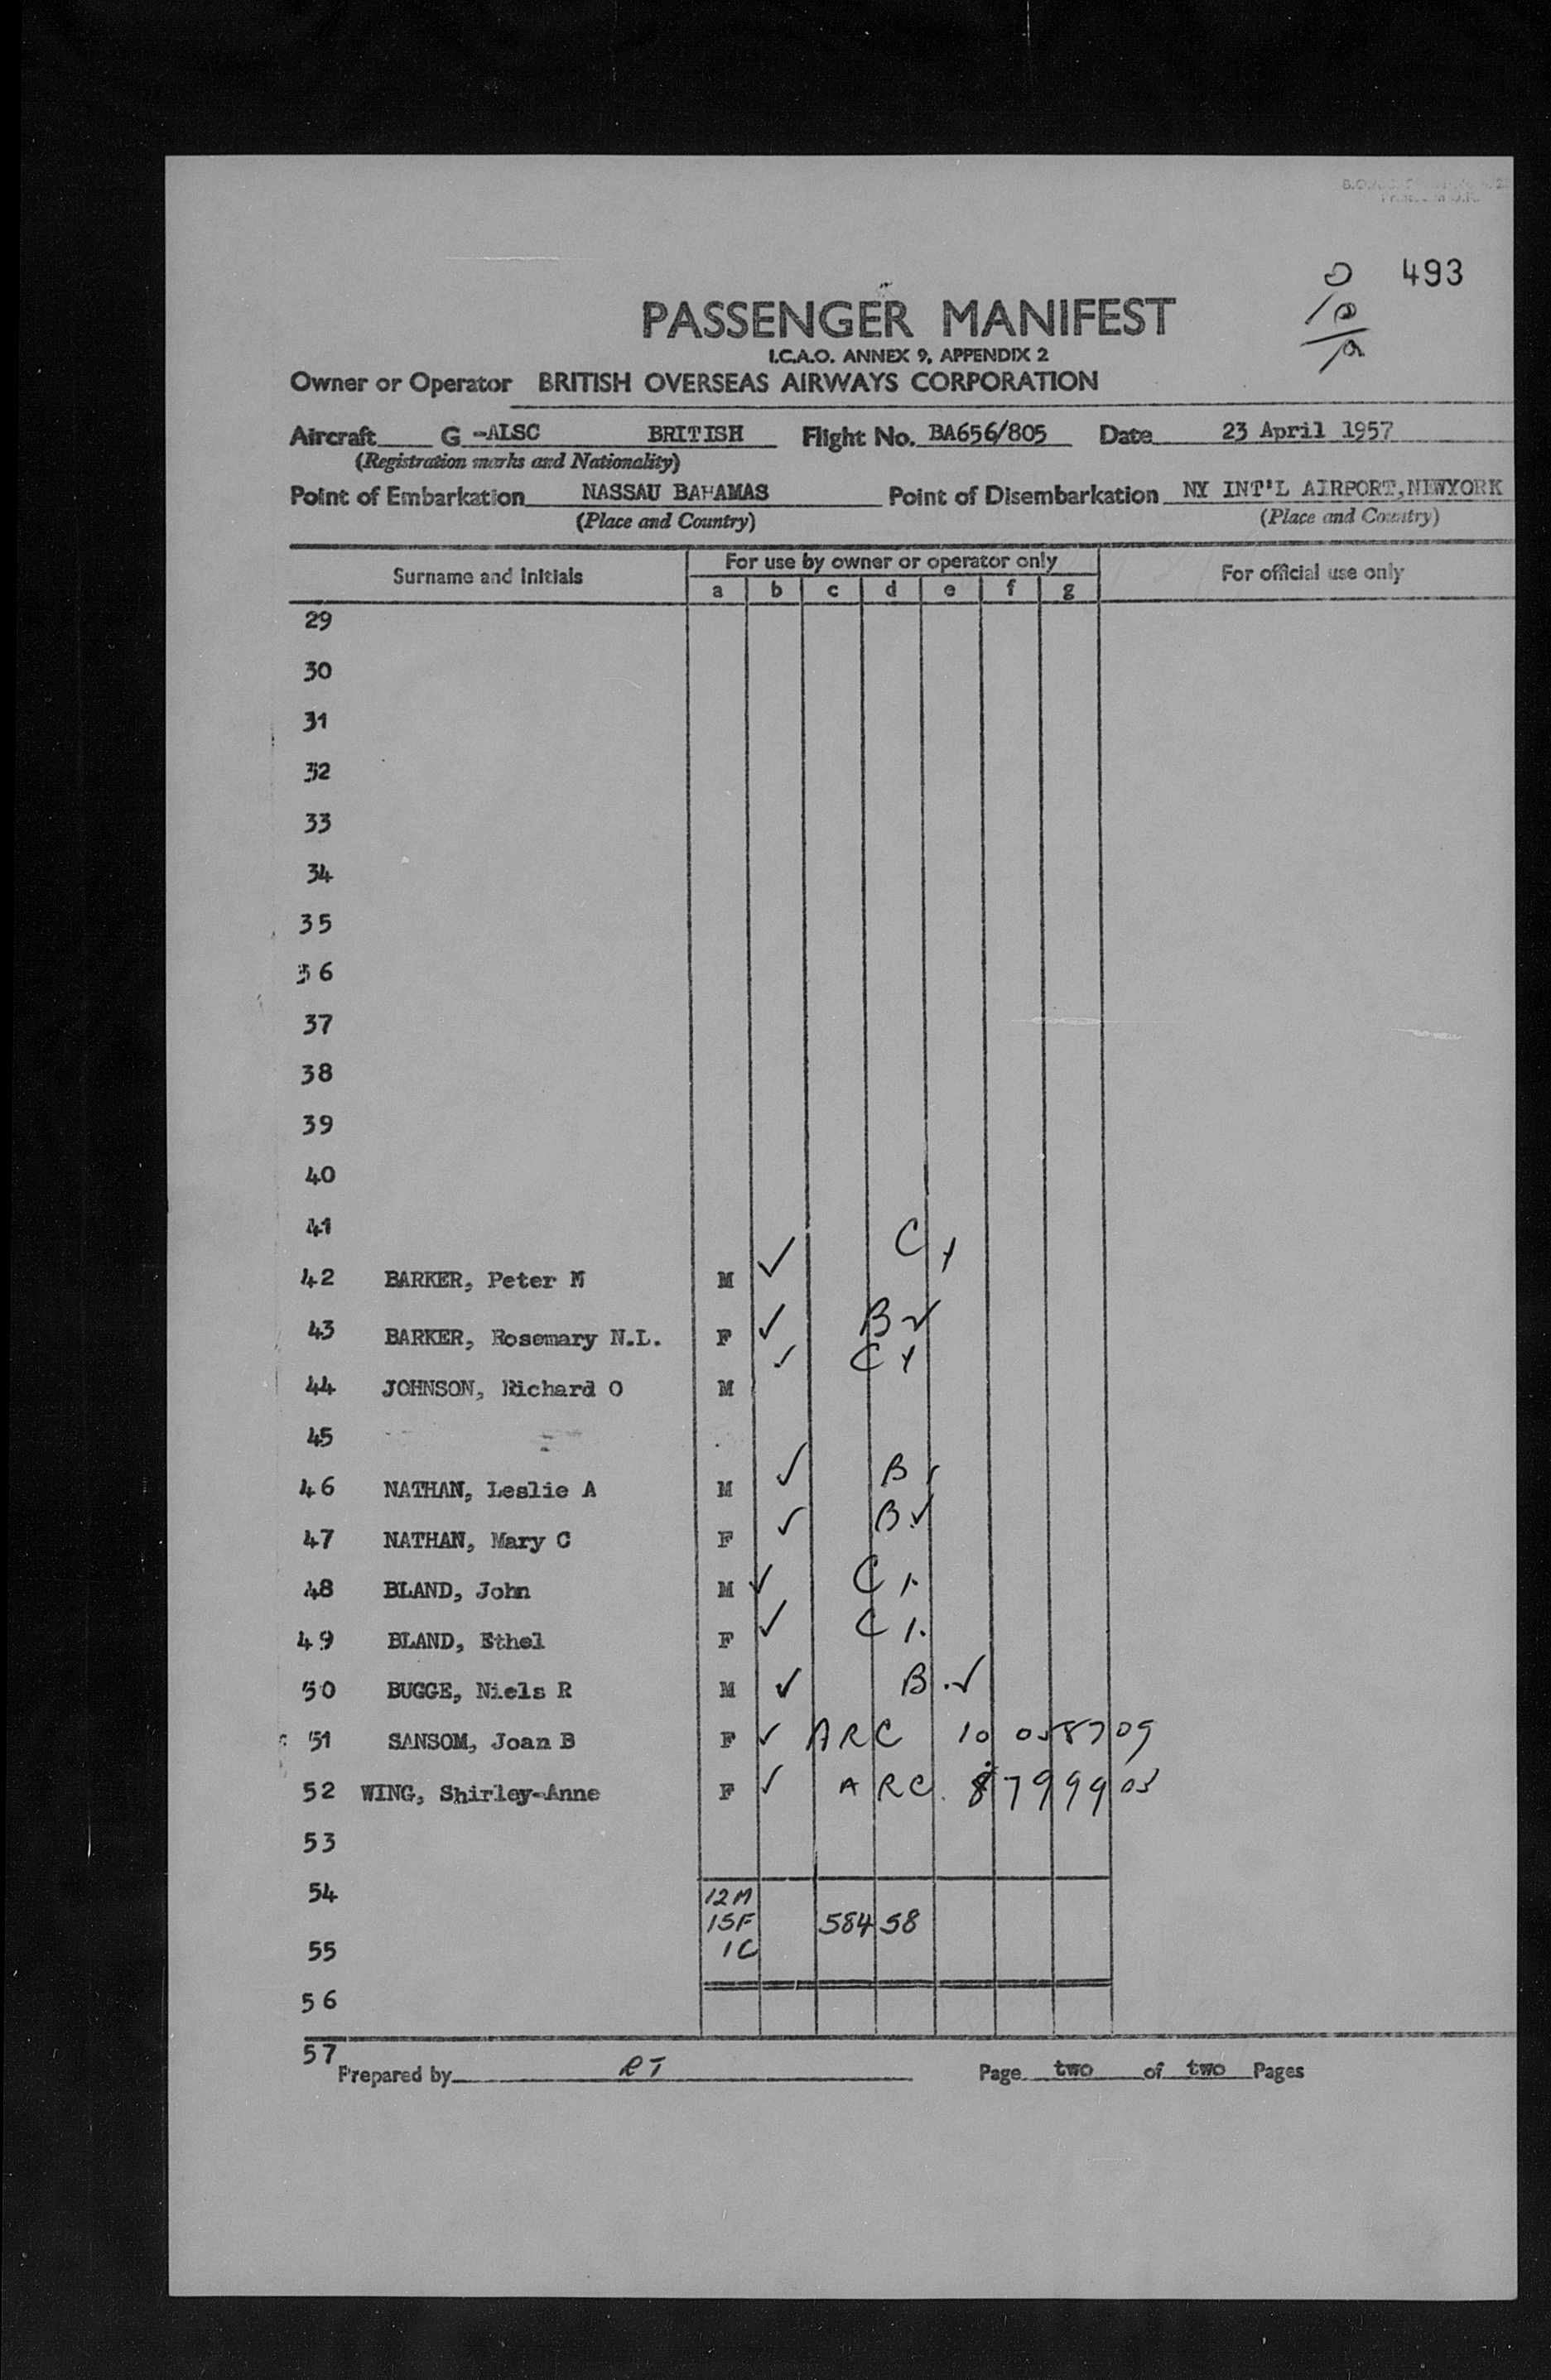 493
PASSENGER MANIFEST
I.C.A.O. ANNEX 9, APPENDIX 2
Owner or Operator BRITISH OVERSEAS AIRWAYS CORPORATION
Aircraft G -ALSC BRITISH Flight No. BA656/805 Date 23 April 1957
(Registration marks and Nationality)
Point of Embarkation NASSAU BAHAMAS Point of Disembarkation NY INT'L AIRPORT,NEWYORK
(Place and Country) (Place and Country)
Surname and Initials For use by owner or operator only For official use only
a b c d e f g
29
30
31
32
33
34
35
36
37
38
39
40
41
42 BARKER, Peter M M ✓ C
43 BARKER, Rosemary N.L. F ✓ B ✓
44 JOHNSON, Richard O M ✓ C
45
46 NATHAN, Leslie A M ✓ B
47 NATHAN, Mary C F ✓ B ✓
48 BLAND, John M ✓ C
49 BLAND, Ethel F ✓ C
50 BUGGE, Niels R M ✓ B ✓
51 SANSOM, Joan B F ✓ ARC 10 058709
52 WING, Shirley-Anne F ✓ ARC
53
54 12M
15F 584 58
55 1C
56
57
Prepared by RT Page two of two Pages